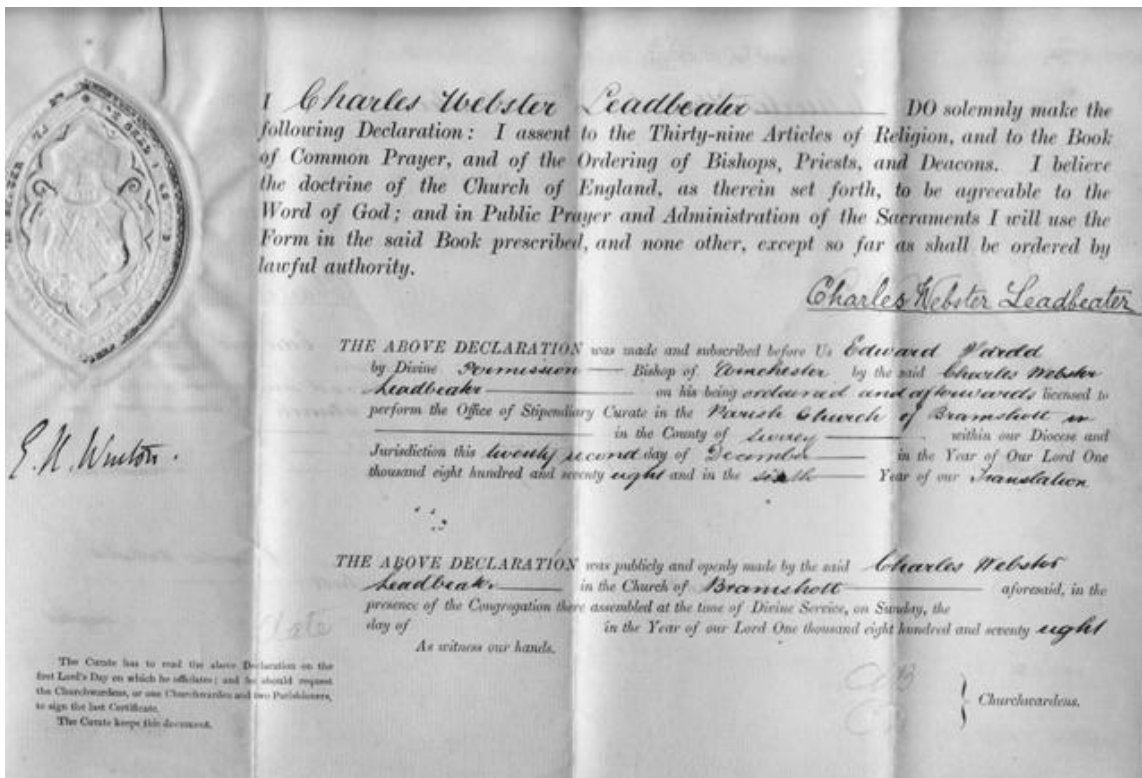 I Charles Webster Leadbeater DO solemnly make the
following Declaration: I assent to the Thirty-nine Articles of Religion, and to the Book
of Common Prayer, and of the Ordering of Bishops, Priests, and Deacons. I believe
the doctrine of the Church of England, as therein set forth, to be agreeable to the
Word of God; and in Public Prayer and Administration of the Sacraments I will use the
Form in the said Book prescribed, and none other, except so far as shall be ordered by
lawful authority.
Charles Webster Leadbeater
THE ABOVE DECLARATION was made and subscribed before Us Edward Harold
by Divine Permission Bishop of Winchester by the said Charles Webster
Leadbeater on his being ordained and afterwards licensed to
perform the Office of Stipendiary Curate in the Parish Church of Bramshott in
in the County of Surrey within our Diocese and
Jurisdiction this twenty second day of December in the Year of Our Lord One
thousand eight hundred and seventy eight and in the sixth Year of our Translation
E. H. Winton.
THE ABOVE DECLARATION was publicly and openly made by the said Charles Webster
Leadbeater in the Church of Bramshott aforesaid, in the
presence of the Congregation there assembled at the time of Divine Service, on Sunday, the
day of in the Year of our Lord One thousand eight hundred and seventy eight
As witness our hands.
Date
The Curate has to read the above Declaration on the
first Lord's Day on which he officiates; and he should request
the Churchwardens, or one Churchwarden and two Parishioners,
to sign the last Certificate.
The Curate keeps this document.
Churchwardens.